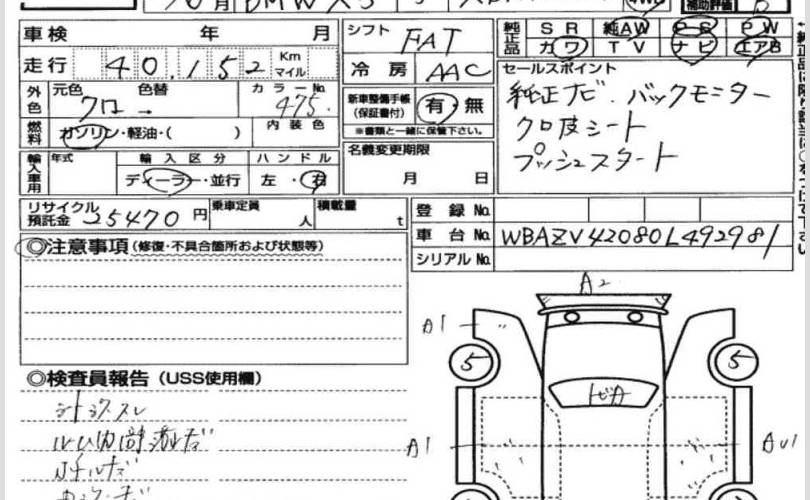 10月 BMW X5
補助評価 B
車検 年 月
シフト FAT
純正品 SR 純AW PS PW
カワ TV ナビ エアB
走行 40,152 Km マイル
冷房 AAC
セールスポイント
純正ナビ.バックモニター
クロ皮シート
プッシュスタート
外色 元色 色替 カラーNo.
クロ → 475.
新車整備手帳(保証書付) 有・無
※書類と一緒に保管下さい。
燃料 ガソリン・軽油・( ) 内装色
名義変更期限
月 日
輸入車用 年式 輸入区分 ハンドル
ディーラー・並行 左・右
リサイクル預託金 25470 円 乗車定員 人 積載量 t
登録No.
車台No. WBAZV42080L492981
シリアルNo.
◎注意事項(修復・不具合箇所および状態等)
A2
A1
5 5
◎検査員報告(USS使用欄)
トビA
シートシワスレ
A1 AU1